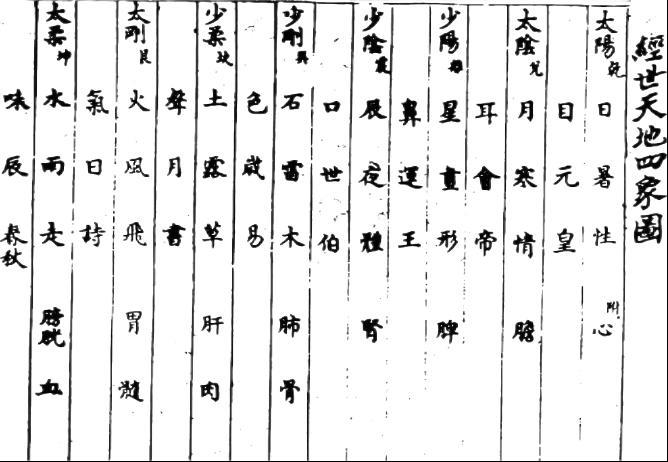 經世天地四象圖
太陽乾 日 暑 性 附心
目 元 皇
太陰兌 月 寒 情 膽
耳 會 帝
少陽離 星 晝 形 脾
鼻 運 王
少陰震 辰 夜 體 腎
口 世 伯
少剛巽 石 雷 木 肺 骨
色 歲 易
少柔坎 土 露 草 肝 肉
聲 月 書
太剛艮 火 風 飛 胃 髓
氣 日 詩
太柔坤 水 雨 走 膀胱 血
味 辰 春秋